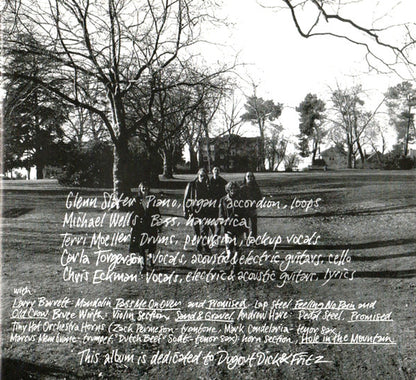 Glenn Slater: Piano, organ, accordion, loops
Michael Wells: Bass, harmonica
Terri Moeller: Drums, percussion, backup vocals
Carla Torgerson: Vocals, acoustic & electric guitars, cello
Chris Eckman: Vocals, electric & acoustic guitars, lyrics
with
Larry Barrett: Mandolin Pass Me On Over and Promised. Lap Steel Feeling No Pain and
Old Crow. Bruce Wirth: Violin Section, Sand & Gravel. Andrew Hare: Pedal Steel, Promised.
Tiny Hat Orchestra Horns (Zack - trombone, Mark - tenor sax,
Marcus - trumpet "Dutch Beef" - tenor sax) horn section, Hole in the Mountain.
This album is dedicated to Dugout Dick & Fritz